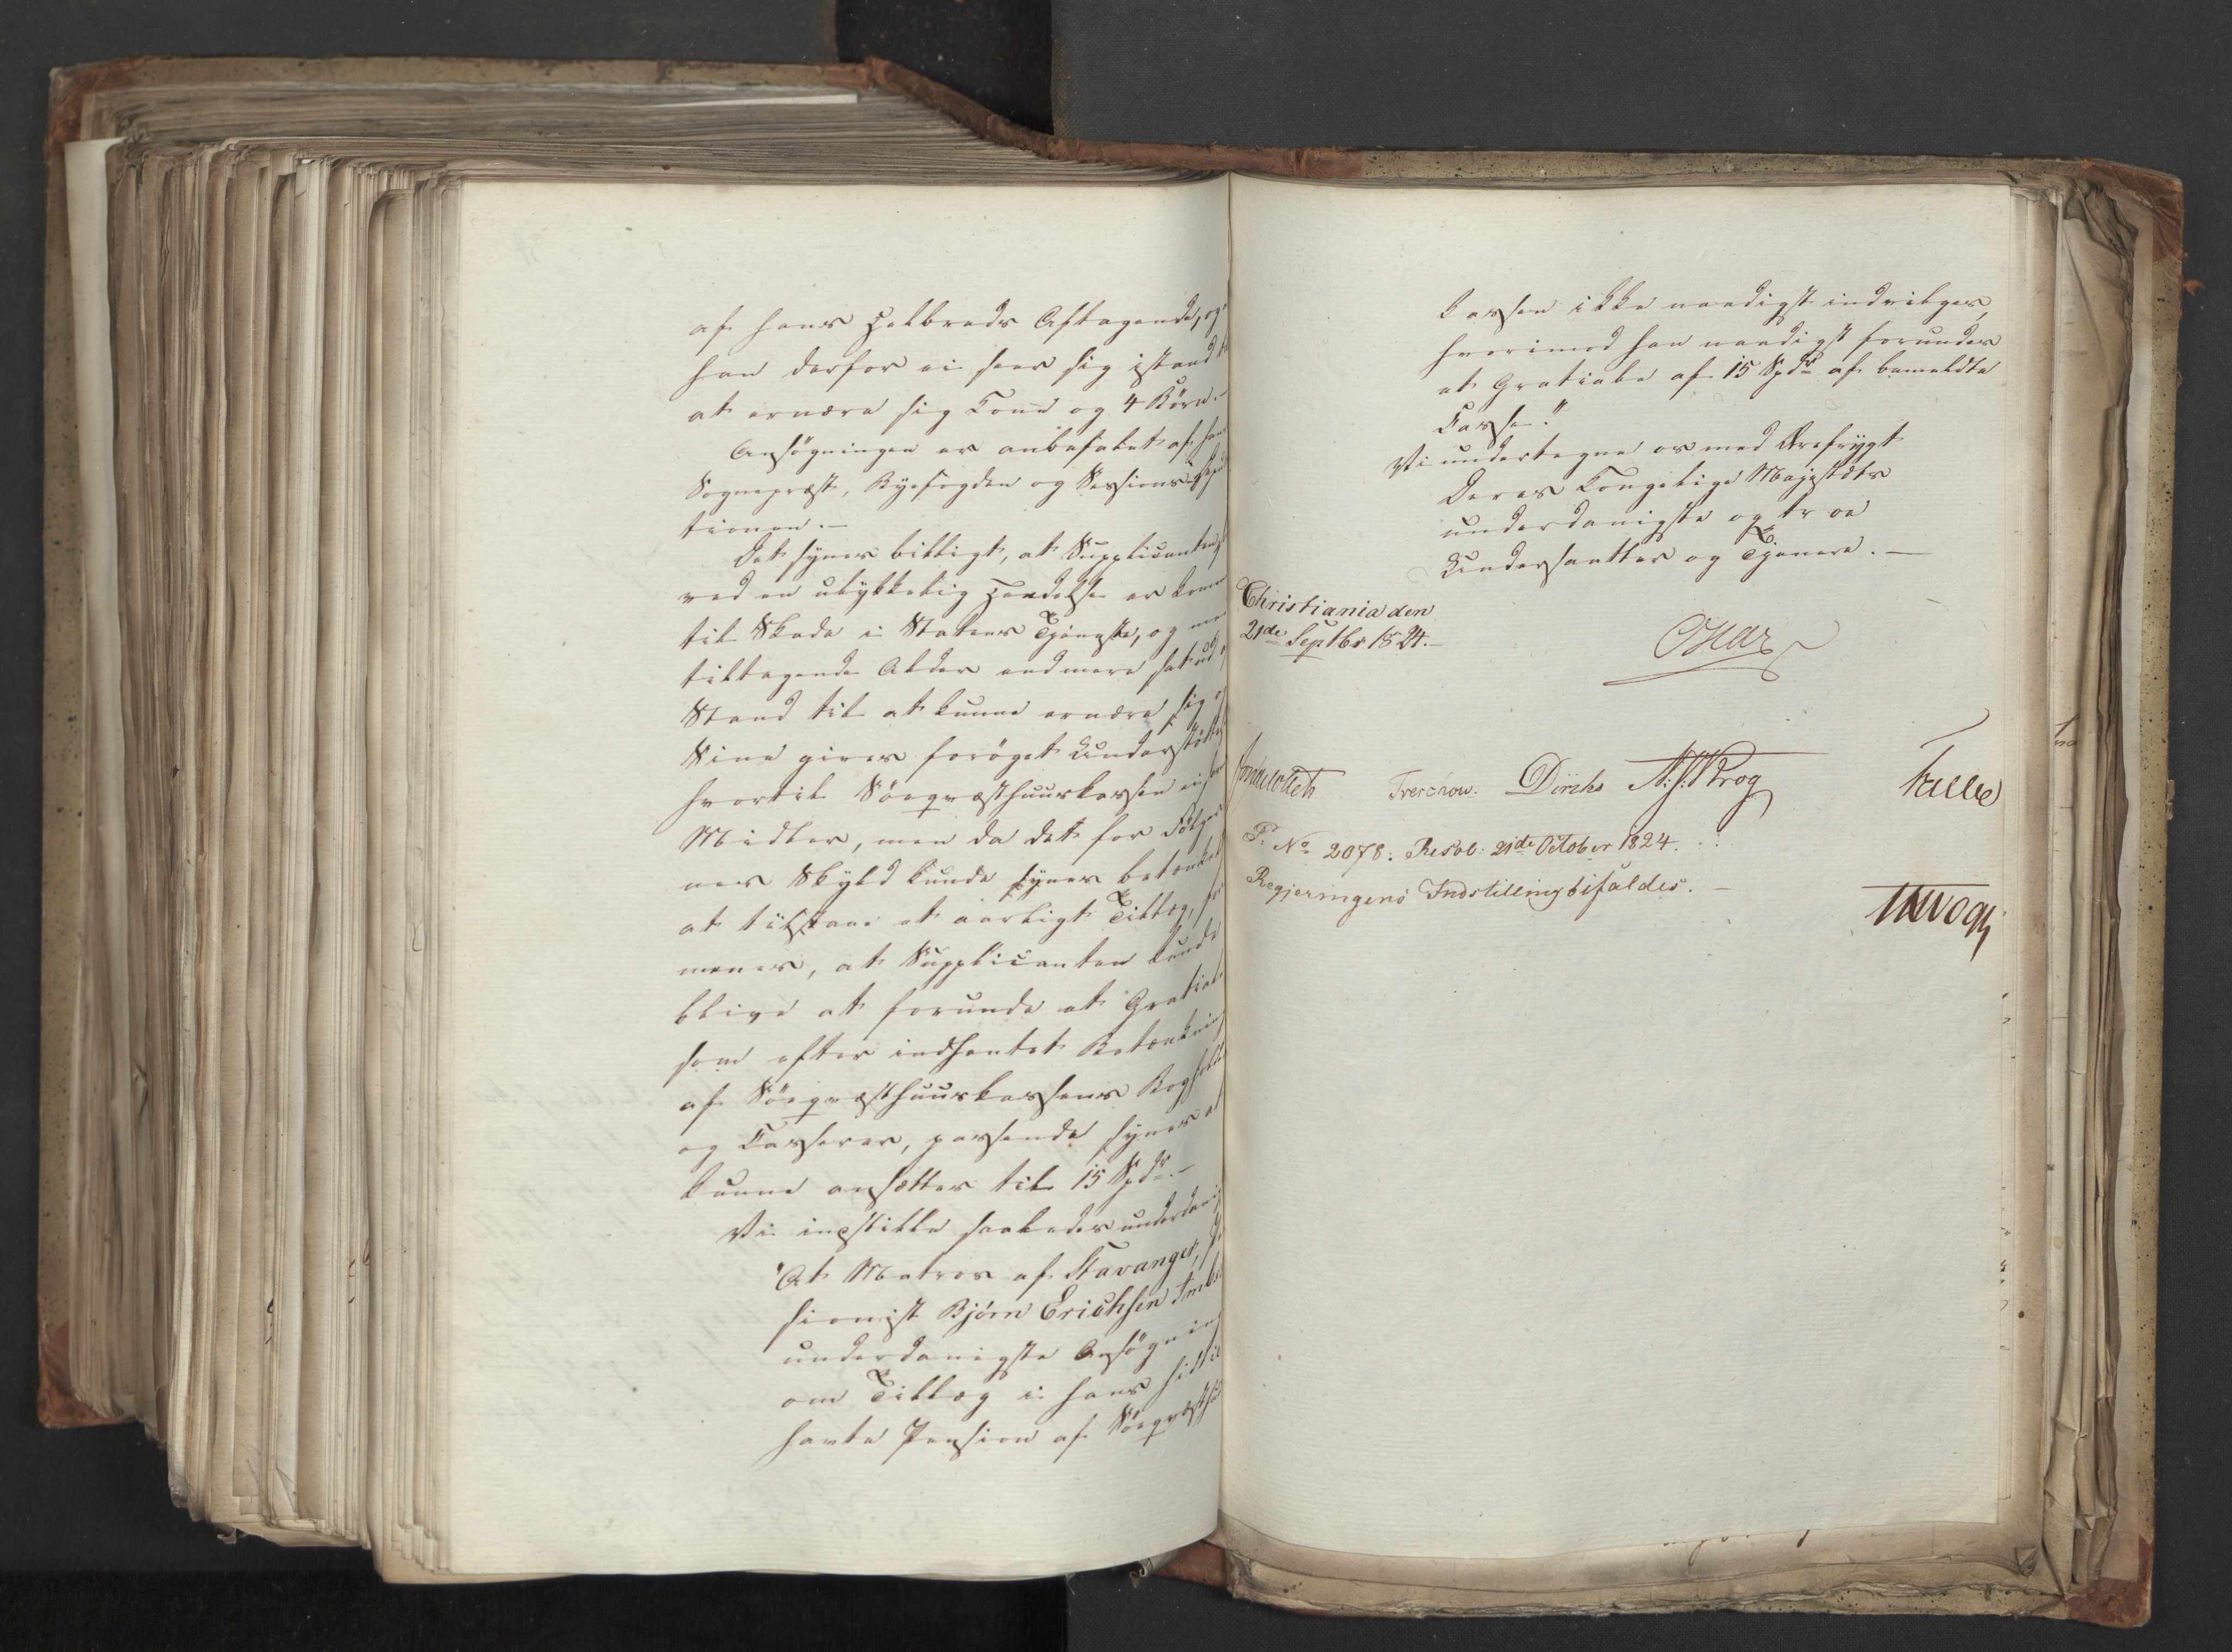 af hans Helbreds Aftagende, og
han derfor ei seer sig istand
at ernære sig Kone og 4 Börn.-
Ansögningen er anbefalet af
Sognepræst, Byefogden og Sessions
tionen.-
Det synes billigt, at Supplicanten,
ved en ulykkelig Hændelse er
til Skade i Statens Tjeneste, og
tiltagende Alder endmere sat ud
Stand til at kunne ernære sig
Sine gives foröget Understöttelse
hvortil Söeqvæsthuuskassen ei
Midler, men da det for Fölger
nes Skyld kunde synes
at tilstaae et aarligt Tillæg,
menes, at Supplicanten kunde
blive at forunde et Gratiale
som efter indhentet Betænkning
af Söeqvæsthuuskassens Bogholder
og Casserer, passende synes at
kunne ansættes til 15 Spdr.-
Vi indstille saaledes underdanigst
"At Matros af Stavanger,
sionist Björn Erichsen
underdanigste Ansögning
om Tillæg i hans hidtil
havte Pension af
kassen ikke naadigst indvilges,
hvorimod han naadigst forundes
et Gratiale af 15 Spdr af bemeldte
Casse."
Vi undertegne os med Ærefrygt
Deres Kongelige Majestæts
underdanigste og troe
Undersaatter og Tjenere.-
Christiania den
21de Septbr 1824.-
Oscar
Treschow. Diriks N: J: Krog
P. No 2078. Resol: 21de October 1824.
Regjeringens Indstilling bifaldes.-